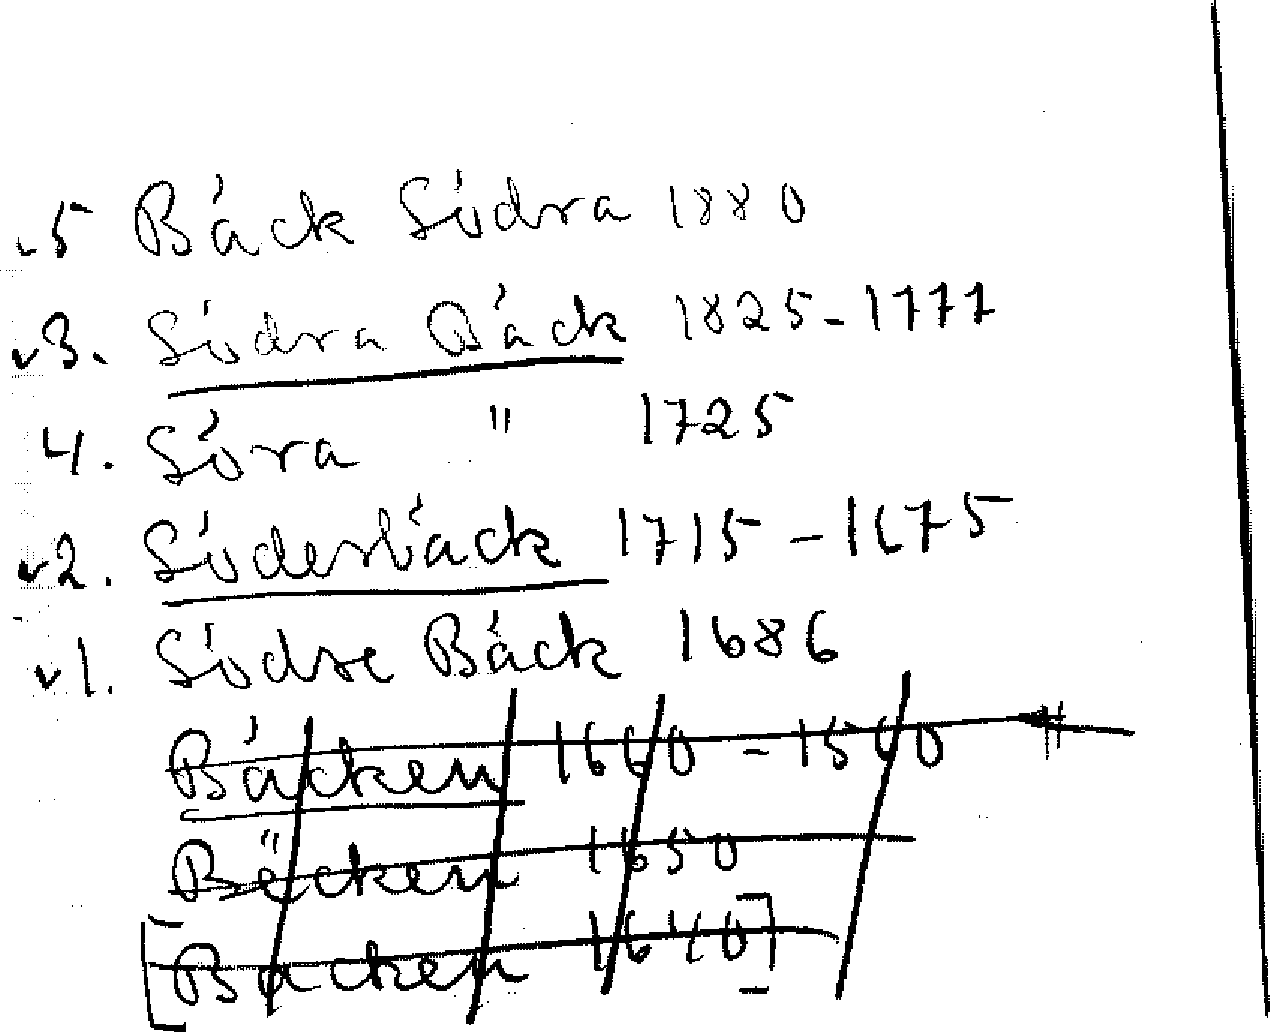 v5 Bäck Södra 1880
v3. Södra Bäck 1825-1777
4. Söra " 1725
v2. Söderbäck 1715-1675
v1. Södre Bäck 1686
Bäcken 1660-1560 #
Bäcken 1650
[Bäcken 1640]